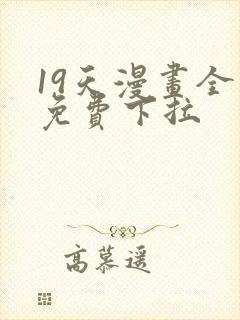 19天漫畫全
免費下拉
高慕遥